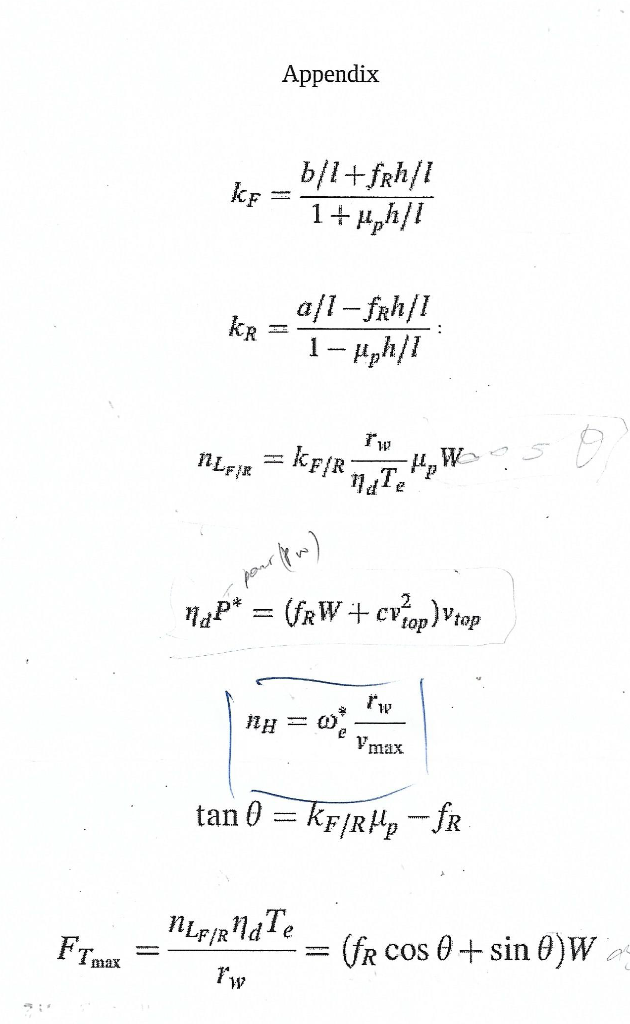 Appendix
k_F = (b/l + f_R h/l) / (1 + μ_p h/l)
k_R = (a/l − f_R h/l) / (1 − μ_p h/l) :
n_{L_{F/R}} = k_{F/R} (r_w / (η_d T_e)) μ_p W cos θ
η_d P* = (f_R W + c v_{top}^2) v_{top}
n_H = ω_e^* (r_w / v_{max})
tan θ = k_{F/R} μ_p − f_R
F_{T_{max}} = (n_{L_{F/R}} η_d T_e) / r_w = (f_R cos θ + sin θ)W